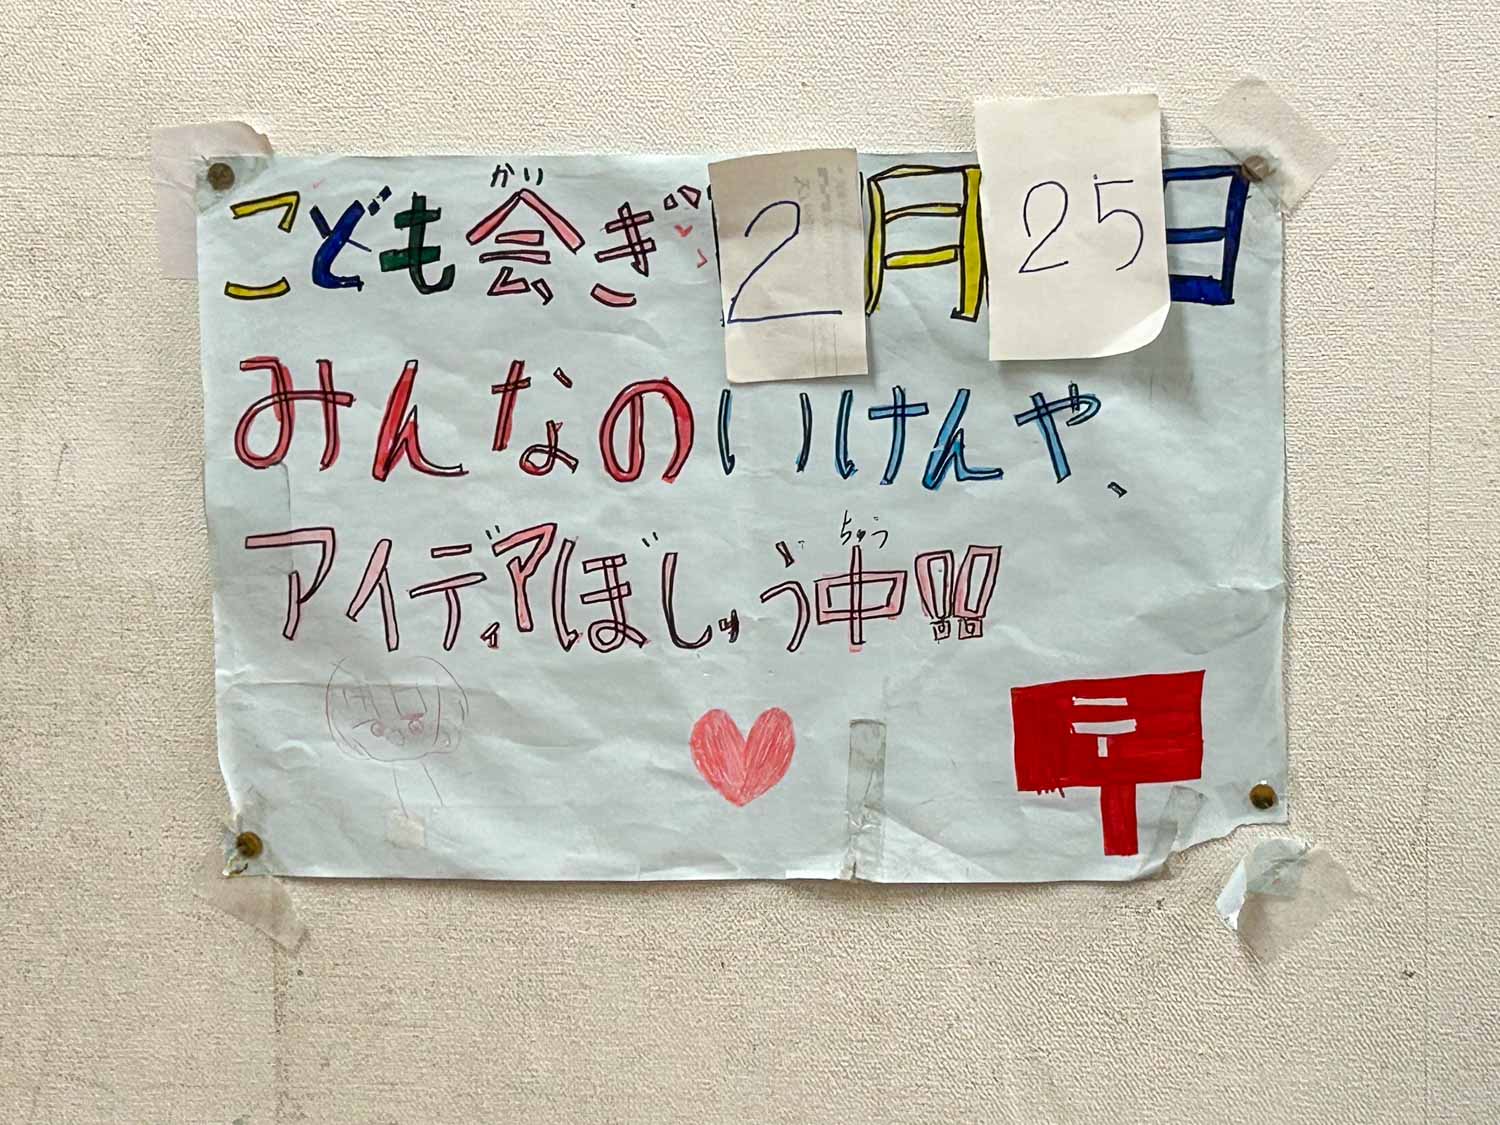 かい
こども会ぎ 2月25日
みんなのいけんや、
ちゅう
アイディアぼしゅう中!!
〒